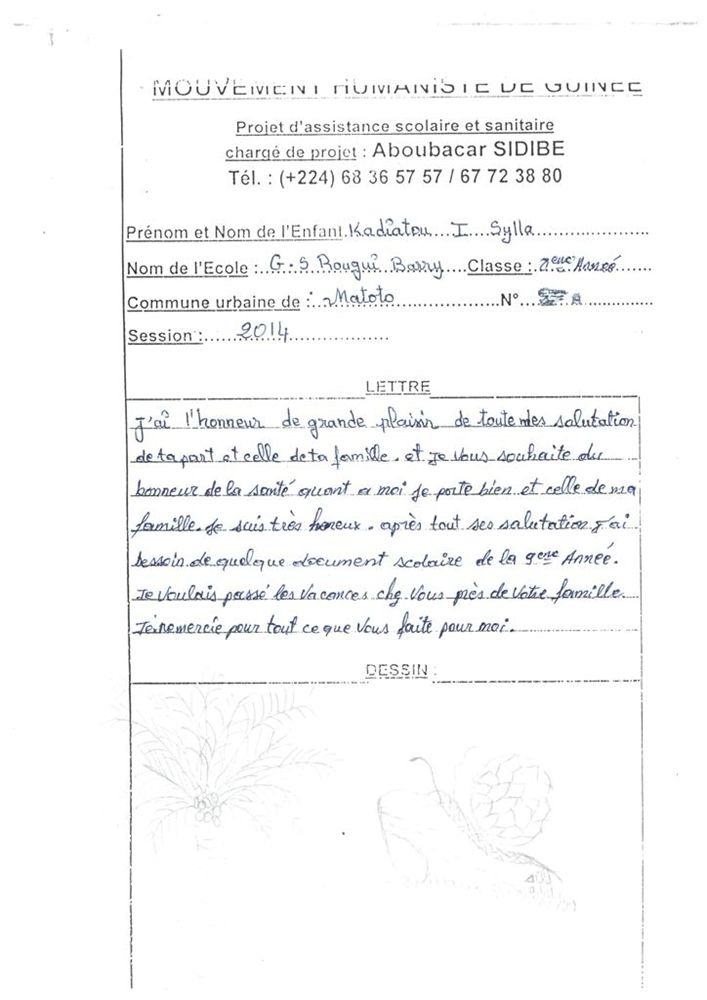 MOUVEMENT HUMANISTE DE GUINEE
Projet d'assistance scolaire et sanitaire
chargé de projet : Aboubacar SIDIBE
Tél. : (+224) 68 36 57 57 / 67 72 38 80
Prénom et Nom de l'Enfant.Kadiatou....I....Sylla....................
Nom de l'Ecole :..G.S.Rougui..Barry....Classe :.........Anneé.......
Commune urbaine de :..Matoto...................N°...............
Session :......2014..................
LETTRE
J'ai l'honneur de grande plaisir de toute mes salutation
de ta part et celle de ta famille. et Je vous souhaite du
bonneur de la santé quant a moi je porte bien et celle de ma
famille. Je suis très hereux. après tout ses salutation j'ai
besoin de quelque document scolaire de la 9eme Anneé.
Je voulais passé les vacances chez vous près de votre famille.
Je remercie pour tout ce que vous faite pour moi.
DESSIN :